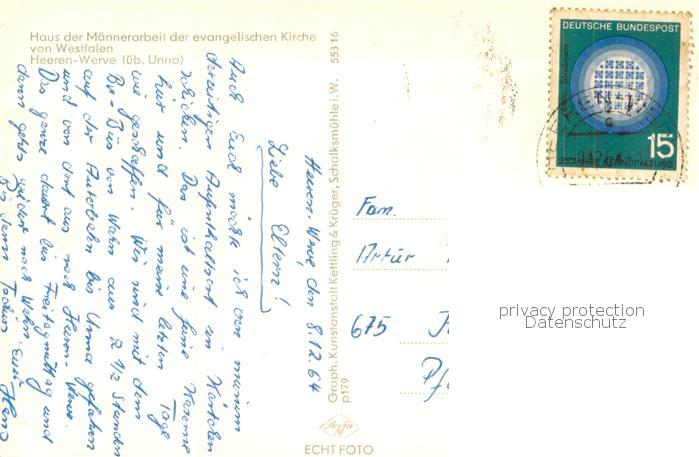 Haus der Männerarbeit der evangelischen Kirche
von Westfalen
Heeren-Werve (üb. Unna)
Heeren-Werve, den 8.12.64
Liebe Eltern!
Auch Euch möchte ich von meinem
derzeitigen Aufenthaltsort ein Kärtchen
schicken. Das ist eine feine
hier und für meine letzten Tage
wie geschaffen. Wir sind mit dem
Bw-Bus von Wahn aus 2 1/2 Stunden
auf der Autobahn bis Unna gefahren
und von dort aus nach Heeren-Werve.
Das ganze dauert bis Freitagmittag und
dann gehts wieder nach Wahn.
Bis dann Euer
Graph. Kunstanstalt Kettling & Krüger, Schalksmühle i. W. 553 16
p179
ECHT FOTO
DEUTSCHE BUNDESPOST
15
25 JAHRE KERNSPALTUNG
Fam.
Artur
675
privacy protection
Datenschutz